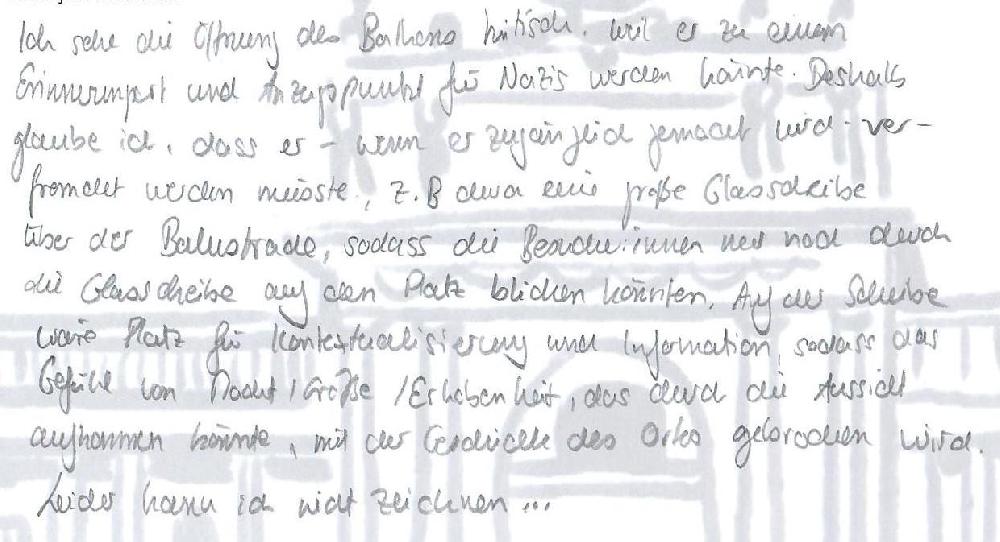 Ich sehe die Öffnung des Balkons kritisch, weil er zu einem
Erinnerungsort und Anzugspunkt für Nazis werden könnte. Deshalb
glaube ich, dass er – wenn er zugänglich gemacht wird – ver-
fremdet werden müsste, z.B durch eine große Glasscheibe
über der Balustrade, sodass die Besucher:innen nur noch durch
die Glasscheibe auf den Platz blicken könnten. Auf der Scheibe
wäre Platz für Kontextualisierung und Information, sodass das
Gefühl von Macht / Größe / Erhabenheit, das durch die Aussicht
aufkommen könnte, mit der Geschichte des Ortes gebrochen wird.
Leider kann ich nicht zeichnen ...